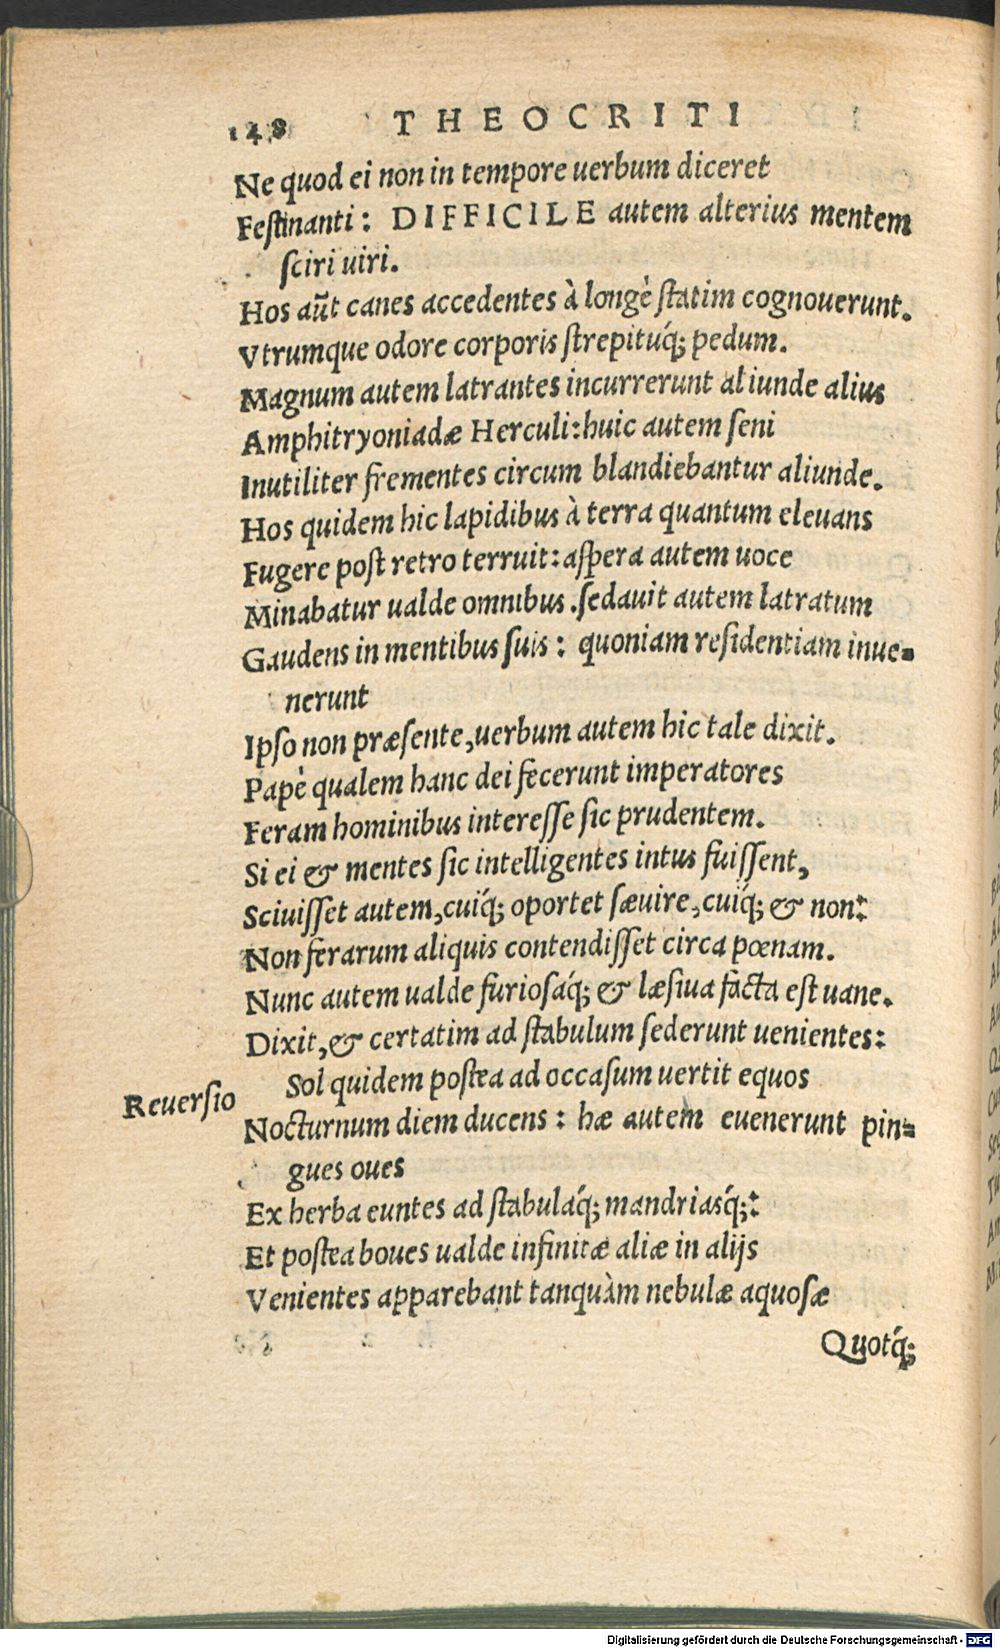 148 THEOCRITI
Ne quod ei non in tempore uerbum diceret
Festinanti: DIFFICILE autem alterius mentem
sciri uiri.
Hos aūt canes accedentes à longè statim cognouerunt.
Vtrumque odore corporis strepituq́; pedum.
Magnum autem latrantes incurrerunt aliunde alius
Amphitryoniadæ Herculi: huic autem seni
Inutiliter frementes circum blandiebantur aliunde.
Hos quidem hic lapidibus à terra quantum eleuans
Fugere post retro terruit: aspera autem uoce
Minabatur ualde omnibus. sedauit autem latratum
Gaudens in mentibus suis: quoniam residentiam inue=
nerunt
Ipso non præsente, uerbum autem hic tale dixit.
Papè qualem hanc dei fecerunt imperatores
Feram hominibus interesse sic prudentem.
Si ei & mentes sic intelligentes intus fuissent,
Sciuisset autem, cuiq́; oportet sæuire, cuiq́; & non:
Non ferarum aliquis contendisset circa pœnam.
Nunc autem ualde furiosaq́; & læsiua facta est uane.
Dixit, & certatim ad stabulum sederunt uenientes:
Sol quidem postea ad occasum uertit equos
Reuersio
Nocturnum diem ducens: hæ autem euenerunt pin=
gues oues
Ex herba euntes ad stabulaq́; mandriasq́;:
Et postea boues ualde infinitæ aliæ in alijs
Venientes apparebant tanquàm nebulæ aquosæ
Quotq́;
Digitalisierung gefördert durch die Deutsche Forschungsgemeinschaft - DFG